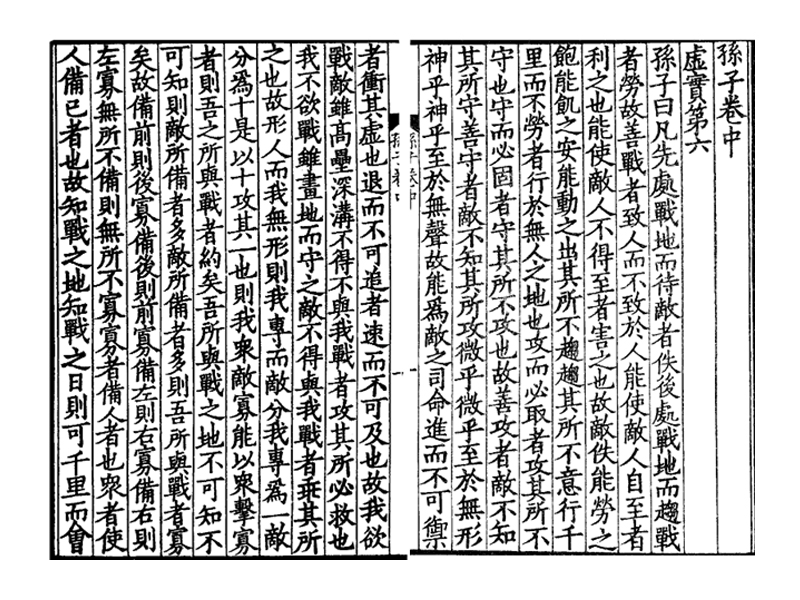 孫子卷中
虛實第六
孫子曰凡先處戰地而待敵者佚後處戰地而趨戰
者勞故善戰者致人而不致於人能使敵人自至者
利之也能使敵人不得至者害之也故敵佚能勞之
飽能飢之安能動之出其所不趨趨其所不意行千
里而不勞者行於無人之地也攻而必取者攻其所不
守也守而必固者守其所不攻也故善攻者敵不知
其所守善守者敵不知其所攻微乎微乎至於無形
神乎神乎至於無聲故能爲敵之司命進而不可禦
孫子卷中
者衝其虛也退而不可追者速而不可及也故我欲
戰敵雖髙壘深溝不得不與我戰者攻其所必救也
我不欲戰雖畫地而守之敵不得與我戰者乖其所
之也故形人而我無形則我專而敵分我專爲一敵
分爲十是以十攻其一也則我衆敵寡能以衆擊寡
者則吾之所與戰者約矣吾所與戰之地不可知不
可知則敵所備者多敵所備者多則吾所與戰者寡
矣故備前則後寡備後則前寡備左則右寡備右則
左寡無所不備則無所不寡寡者備人者也衆者使
人備已者也故知戰之地知戰之日則可千里而會